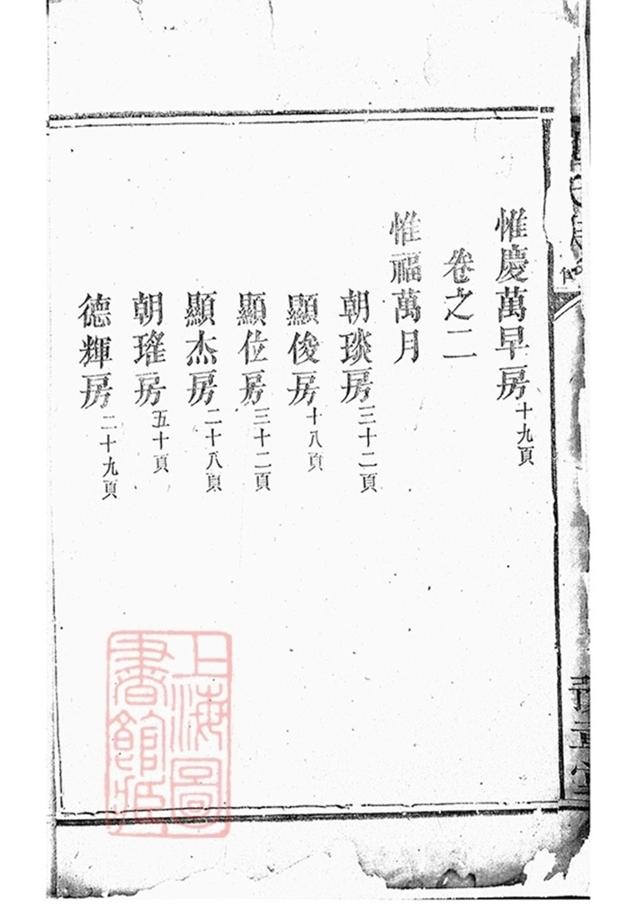 惟慶萬早房十九頁
卷之二
惟福萬月
朝琰房三十二頁
顯俊房十八頁
顯位房三十二頁
顯杰房二十八頁
朝瑤房五十頁
德輝房二十九頁
上海圖
書館藏